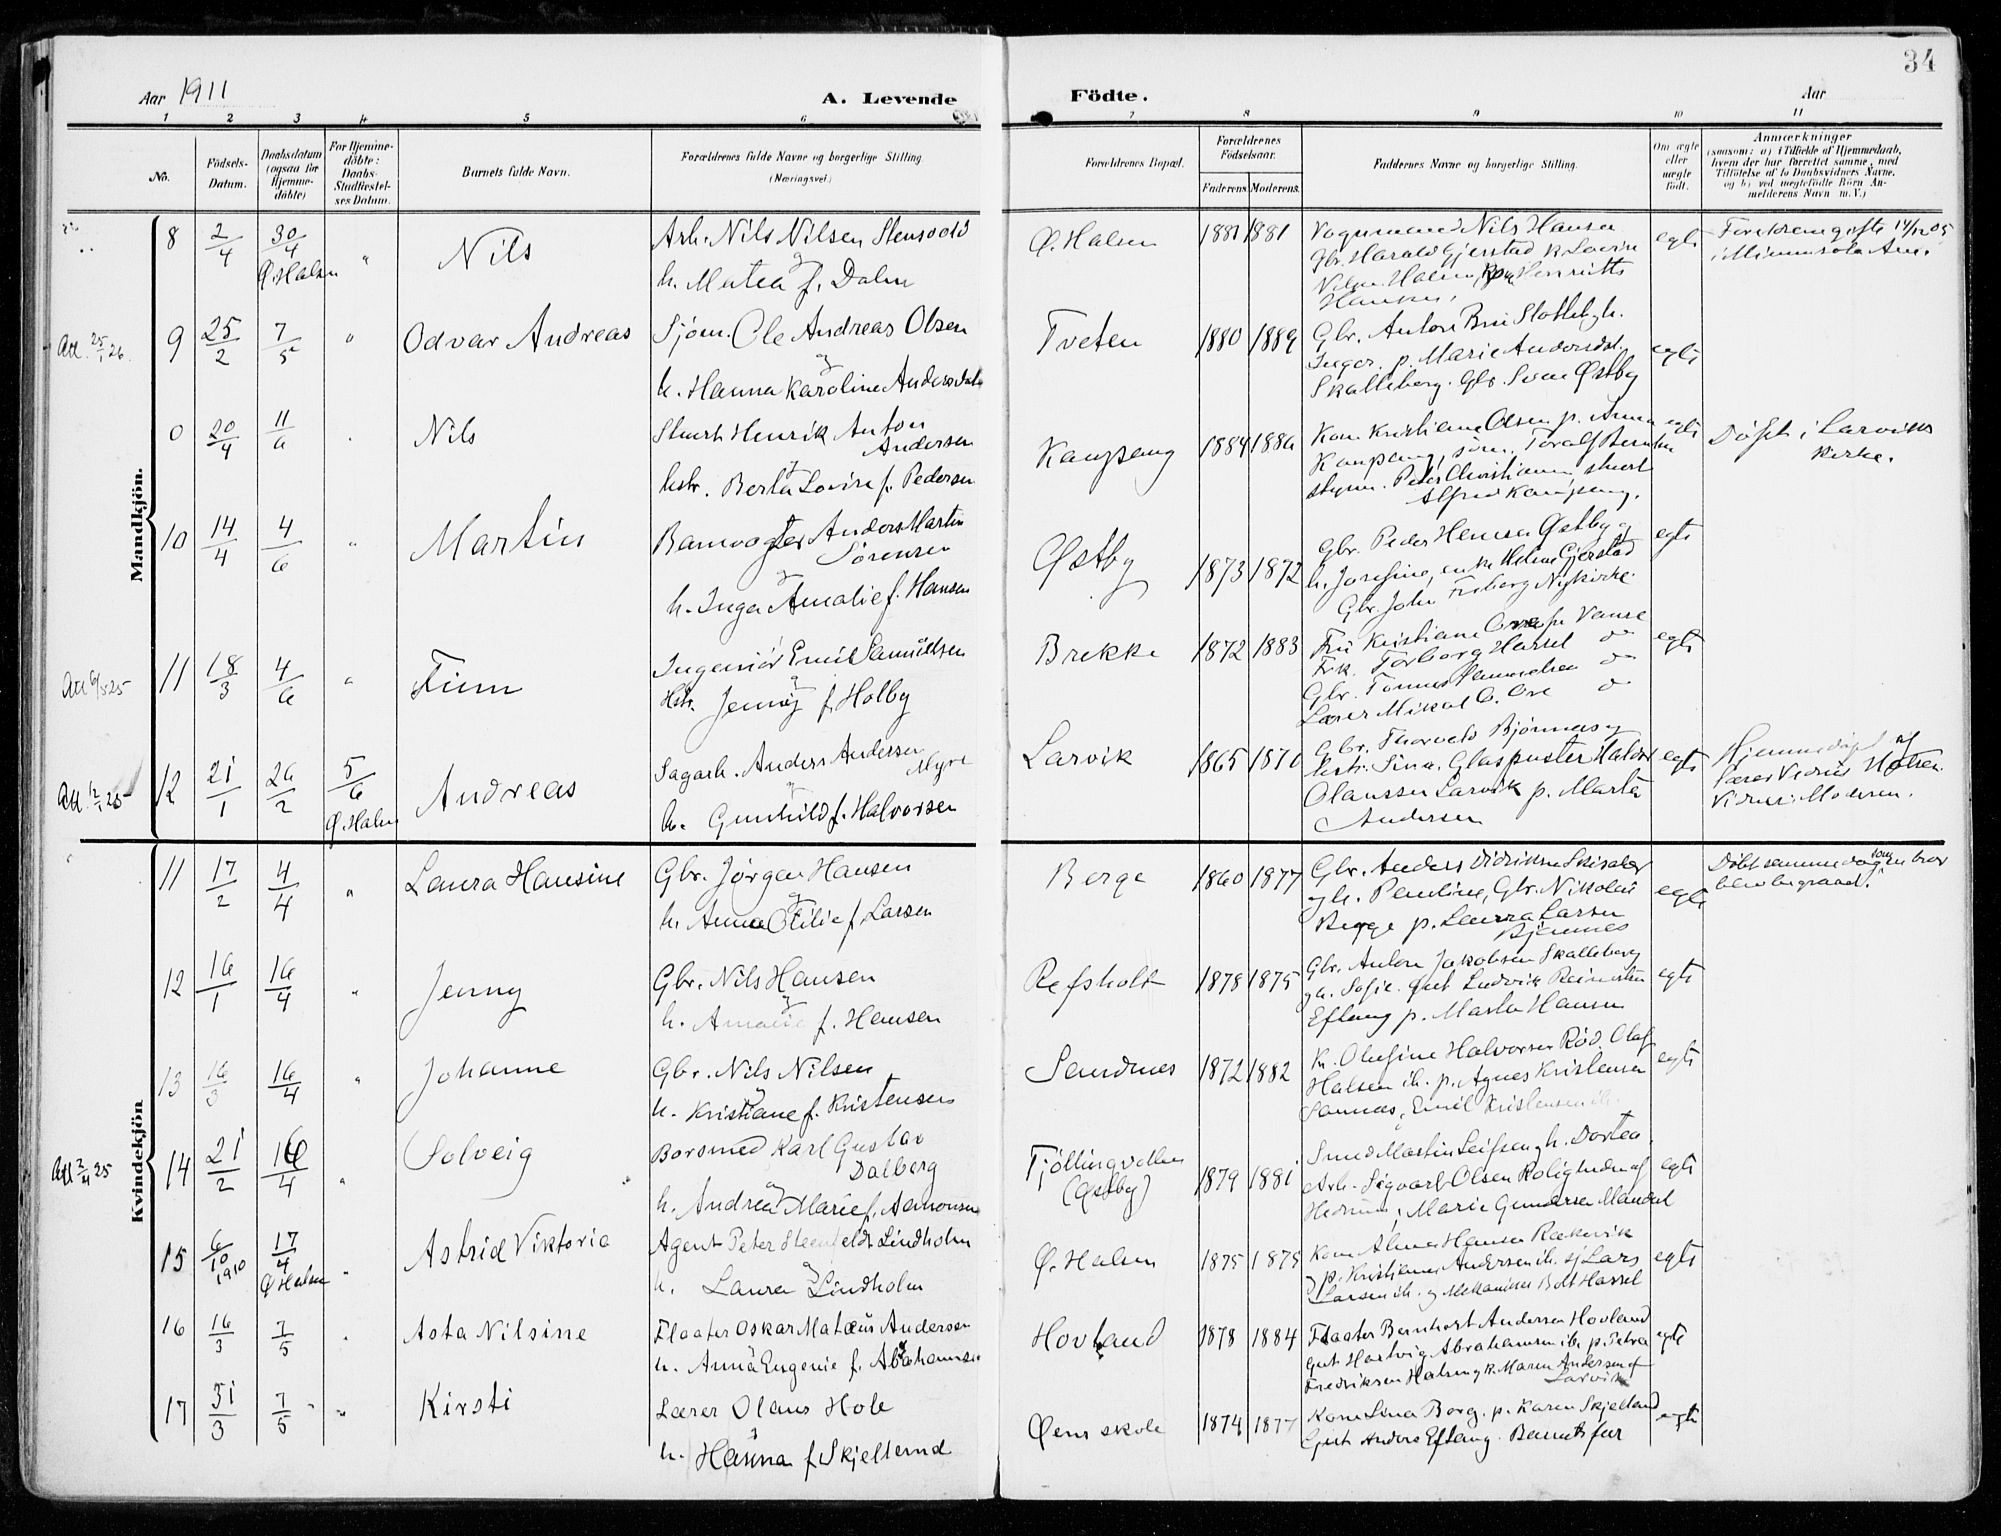 34
Aar 1911
A. Levende
Födte.
Aar
1 2 3 4 5 6 7 8 9 10 11
No.
Födsels-Datum.
Daabsdatum (ogsaa for Hjemme-döbte)
For Hjemme-döbte: Daabs-Stadfæstel-ses Datum.
Barnets fulde Navn.
Forældrenes fulde Navne og borgerlige Stilling.
(Næringsvei.)
Forældrenes Bopæl.
Forældrenes Födselsaar.
Faderens. Moderens.
Faddernes Navne og borgerlige Stilling.
Om ægte eller uægte födt.
Anmærkninger
(saasom: a) i Tilfælde af Hjemmedaab,
hvem der har forrettet samme, med
Tilföielse af to Daabsvidners Navne,
og b) ved uægtefödte Börn An-
melderens Navn m. V.)
Mandkjön.
8 2/4 30/4 Ø. Halsen " Nils
Arb. Nils Nilsen Stensvold
og
h. Matea f. Dalen
Ø. Halsen 1881 1881
Vognmand Nils Hansen
Gbr. Harald Gjerstad k. Lovise
Halsen, Henriette
Hansen,
egte
14/12 05
i Minnesota Am.
Att. 25/1 26. 9 25/2 7/5 " Odvar Andreas
Sjøm. Ole Andreas Olsen
og
h. Hanna Karoline Andersdat
Tveten 1880 1889
Gbr. Anton Slottebgh.
Inger. p. Marie Andersdat.
Skalleberg. Gbr. Østby
egte
0 20/4 11/6 Nils
Stuert Henrik Anton
Andersen
og
hstr. Berta Lovise f. Pedersen
Kaupang 1884 1886
Kone Kristiane Olsen p. Anna
Kaupang, sjøm. Toralf Berntsen
styrm. Peder Christiansen stuert
Alfred Kaupang.
egte
Døpt i Larviks
kirke.
10 14/4 4/6 " Martin
Banevogter Anders Martin
Sørensen
og
h. Inga Amalie f. Hansen
Østby 1873 1872
Gbr. Peder Hansen Østby og
h. Josefine, enke Helene Gjerstad
Gbr. John Freberg Nykirke.
egte
Att 6/5 25 11 18/3 4/6 " Finn
Ingeniør Emil Samuelsen
og
Hstr. Jenny f. Holby
Brekke 1872 1883
Fru Kristiane Ore pr Vanse
Frk. Torborg Hassel do
Gbr. Tønnes Samuelsen do
Lærer Mikal C. Ore do
egte
Att. 12/1 25 12 21/1 26/2 5/6 Ø. Halsen Andreas
Sagarb. Anders Andersen
Myre
h. Gunhild f. Halvorsen
Larvik 1865 1870
Gbr. Thorvald Bjønnes og
hstr. Sina. Glaspuster Halvor
Olaussen Larvik p. Marta
Andersen
egte
Hjemmedøpt af
Moderen.
Kvindekjön
11 17/2 4/4 " Laura Hansine
Gbr. Jørgen Hansen
og
h. Anna Otilie f. Larsen
Berge 1860 1877
Gbr. Anders Didriksen Skisaker
gh. Pauline, Gbr. Nikolai
Berge p. Laura Larsen
Bjønnes
egte
Døbt samme dag som en bror
blev begravd.
12 16/1 16/4 " Jenny
Gbr. Nils Hansen
og
h. Amalie f. Hansen
Refsholt 1878 1875
Gbr. Anton Jakobsen Skalleberg
gh. Sofie. gut Ludvik
Eftang p. Marta Hansen
egte
13 16/3 16/4 " Johanne
Gbr. Nils Nilsen
og
h. Kristiane f. Kristensen
Sandnes 1872 1882
K. Olufine Halvorsen Rød. Olaf
Halsen ib. p. Agnes Kristensen
Sannæs, Emil Kristensen ib.
egte
Att 2/4 25 14 21/2 16/4 " Solveig
Borsmed Karl Gustav
Dalberg
og
h. Andrea Marie f. Aamonsen
Tjøllingvollen
(Østby)
1879 1881
Smed Martin Leifsen gh. Dortea.
Arb. Sigvart Olsen Roligheden af
Hedrum, Marie Gundersen Mandal
egte
15 6/10 1910 17/4 Ø. Halsen " Astrid Viktoria
Agent Peter Steenfeldt Lindholm
og
h. Laura Lindholm
Ø. Halsen 1875 1875
Kone Alma Hansen Rækevik
p. Kristiane Andersen ib. sj Lars
Larsen ib. og Mekaniker Bolt Hassel
egte
16 16/3 7/5 Asta Nilsine
Fløater Oskar Mateus Andersen
og
h. Anna Eugenie f. Abrahamsen
Hovland 1878 1884
Fløater Bernhart Andersen Hovland
gut Hartvig Abrahamsen ib. p. Petra
Fredriksen Halsen gk. Maren Andersen af
Larvik
egte
17 31/3 7/5 " Kirsti
Lærer Olaus Hole
og
h. Hanna f. Skjelland
Øens skole 1874 1877
Kone Lina Berg. p. Karen Skjelland
Gut Anders Eftang. Barnets far
egte